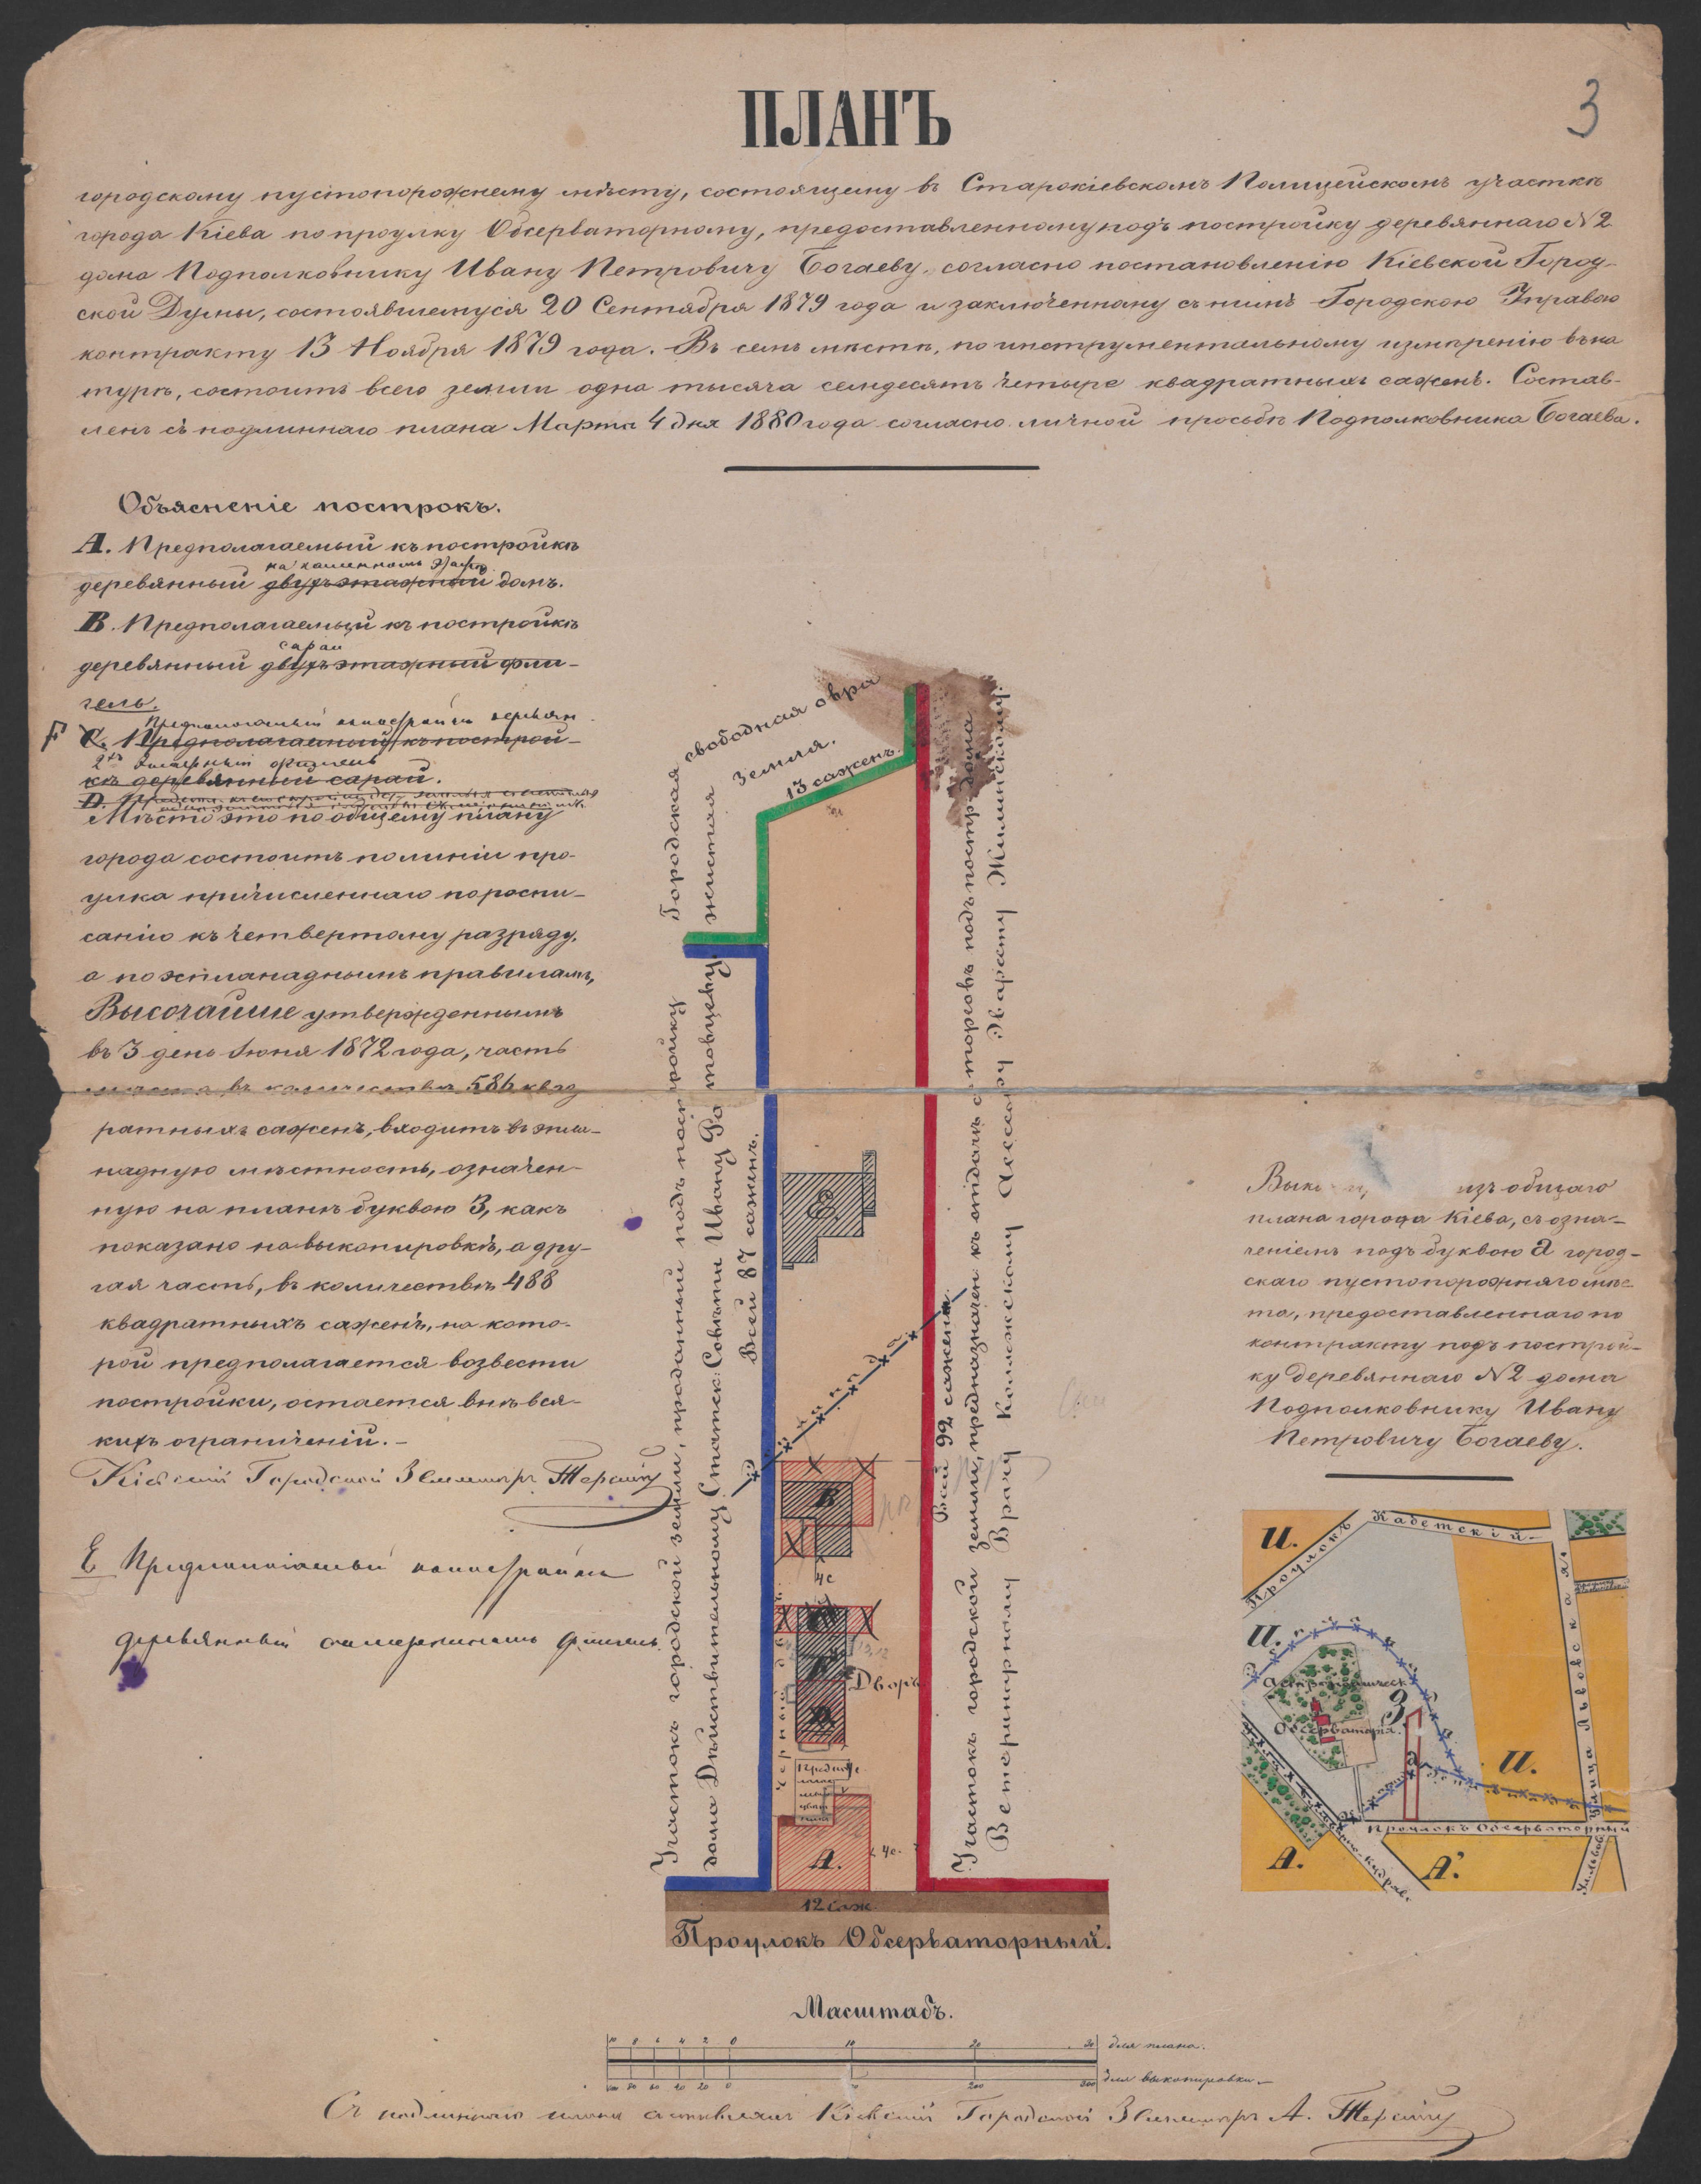 3
ПЛАНЪ
городскому пустопорожнему мѣсту, состоящему въ Старокіевскомъ Полицейскомъ участкѣ
города Кіева по проулку Обсерваторному, предоставленному подъ постройку деревяннаго N 2
дома Подполковнику Ивану Петровичу Богаеву, согласно постановленію Кіевской Город-
ской Думы, состоявшемуся 20 Сентября 1879 года и заключенному съ нимъ Городскою Управою
контракту 13 Ноября 1879 года. Въ семъ мѣстѣ, по инструментальному измѣренію въ на
турѣ, состоитъ всего земли одна тысяча семдесятъ четыре квадратныхъ сажень. Состав-
ленъ съ подлиннаго плана Марта 4 дня 1880 года согласно личной просьбѣ Подполковника Богаева.
Объясненіе построкъ.
А. Предполагаемый къ постройкѣ
на каменномъ
деревянный двухъэтажный домъ.
В. Предполагаемый къ постройкѣ
сарай
деревянный двухъэтажный фли-
гель.
Предполагаемый
F С. Предполагаемый къ построй-
кѣ деревянный сарай.
D.
Мѣсто это по общему плану
города состоитъ по линіи про-
улка причисленнаго по роспи-
санію къ четвертому разряду,
а по эспланаднымъ правиламъ,
Высочайше утвержденнымъ
въ 3 день Іюня 1872 года, часть
мѣста, въ количествѣ 586 квад
ратныхъ сажень, входитъ въ эспла-
надную мѣстность, означен-
ную на планѣ буквою З, какъ
показано на выкопировкѣ, а дру-
гая часть, въ количествѣ 488
квадратныхъ сажень, на кото-
рой предполагается возвести
постройки, остается внѣ вся-
кихъ ограниченій. -
Кіевскій Городской Землемѣръ
Е Предполагаемый
деревянный флигель.
Городская свободная овра
жистая земля.
13 сажень.
Участокъ городской земли, проданный подъ постройку
дома Дѣйствительному Статск: Совѣтн Ивану
Всей 87 сажень.
Участокъ городской земли, предназначен къ отдачѣ съ торговъ подъ постр. дома
Ветеринарному Врачу Коллежскому Ассесору Эваристу Жилинскому.
Всей 92 сажени.
В.
4 с
Дворъ
А.
4 с.
12 саж
Проулокъ Обсерваторный.
изъ общаго
плана города Кіева, съ озна-
ченіемъ подъ буквою а город-
скаго пустопорожняго мѣс-
та, предоставленнаго по
контракту подъ построй-
ку деревяннаго N 2 дома
Подполковнику Ивану
Петровичу Богаеву.
Проулокъ Кадетскій
И.
И.
Астрономическ
Обсерваторія.
З
И.
Улица Львовская
Проулокъ Обсерваторный
А.
А.
Масштабъ.
10 8 6 4 2 0 10 20 30 для плана.
100 80 60 40 20 0 200 300 для выкопировки
Съ подлиннаго плана составлялъ Кіевскій Городской Землемѣръ А.